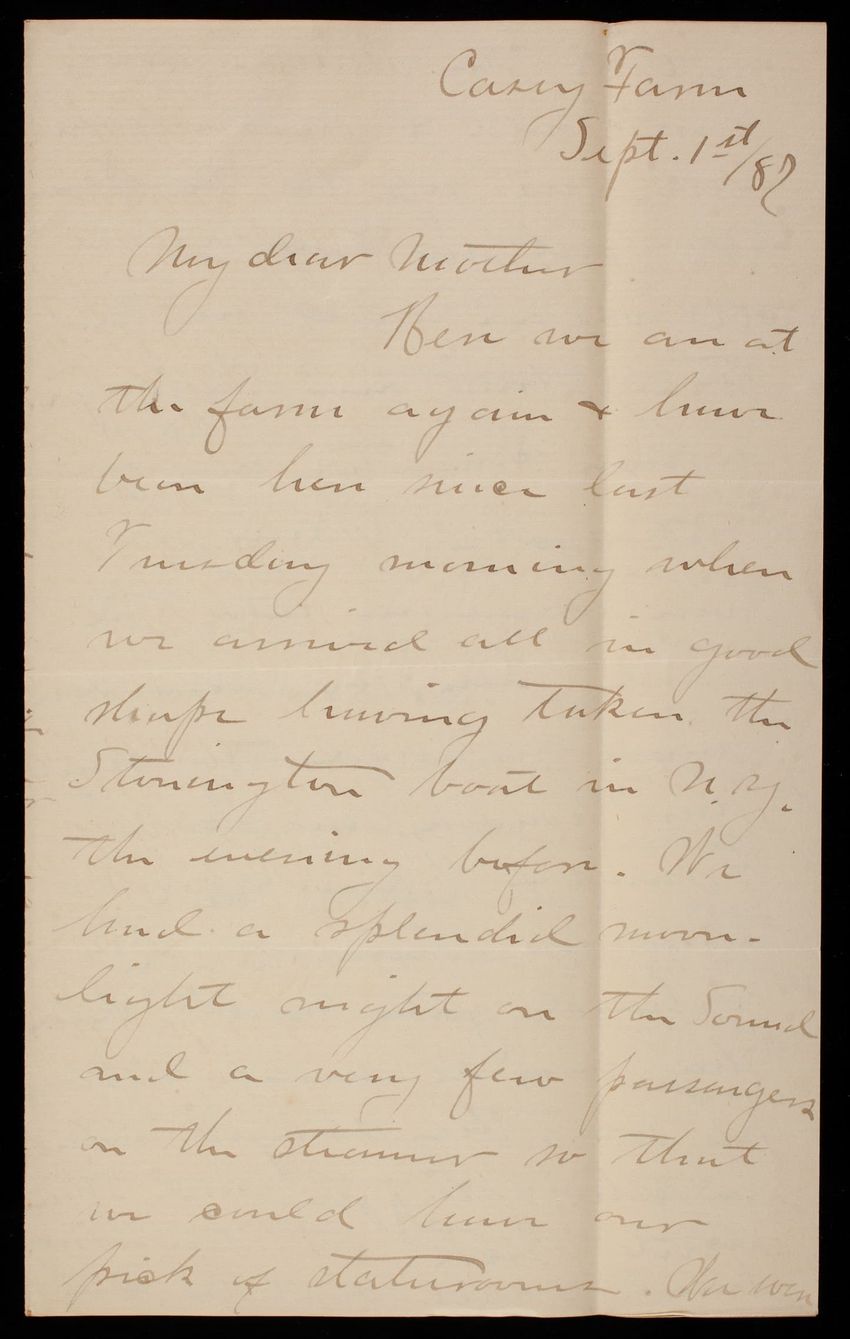 Casey Farm
Sept. 1st/87
My dear Mother
Here we are at
the farm again & have
been here since last
Tuesday morning when
we arrived all in good
shape having taken the
Stonington boat in N.Y.
the evening before. We
had a splendid moon-
light night on the Sound
and a very few passengers
on the steamer so that
we could have our
pick of staterooms. We were